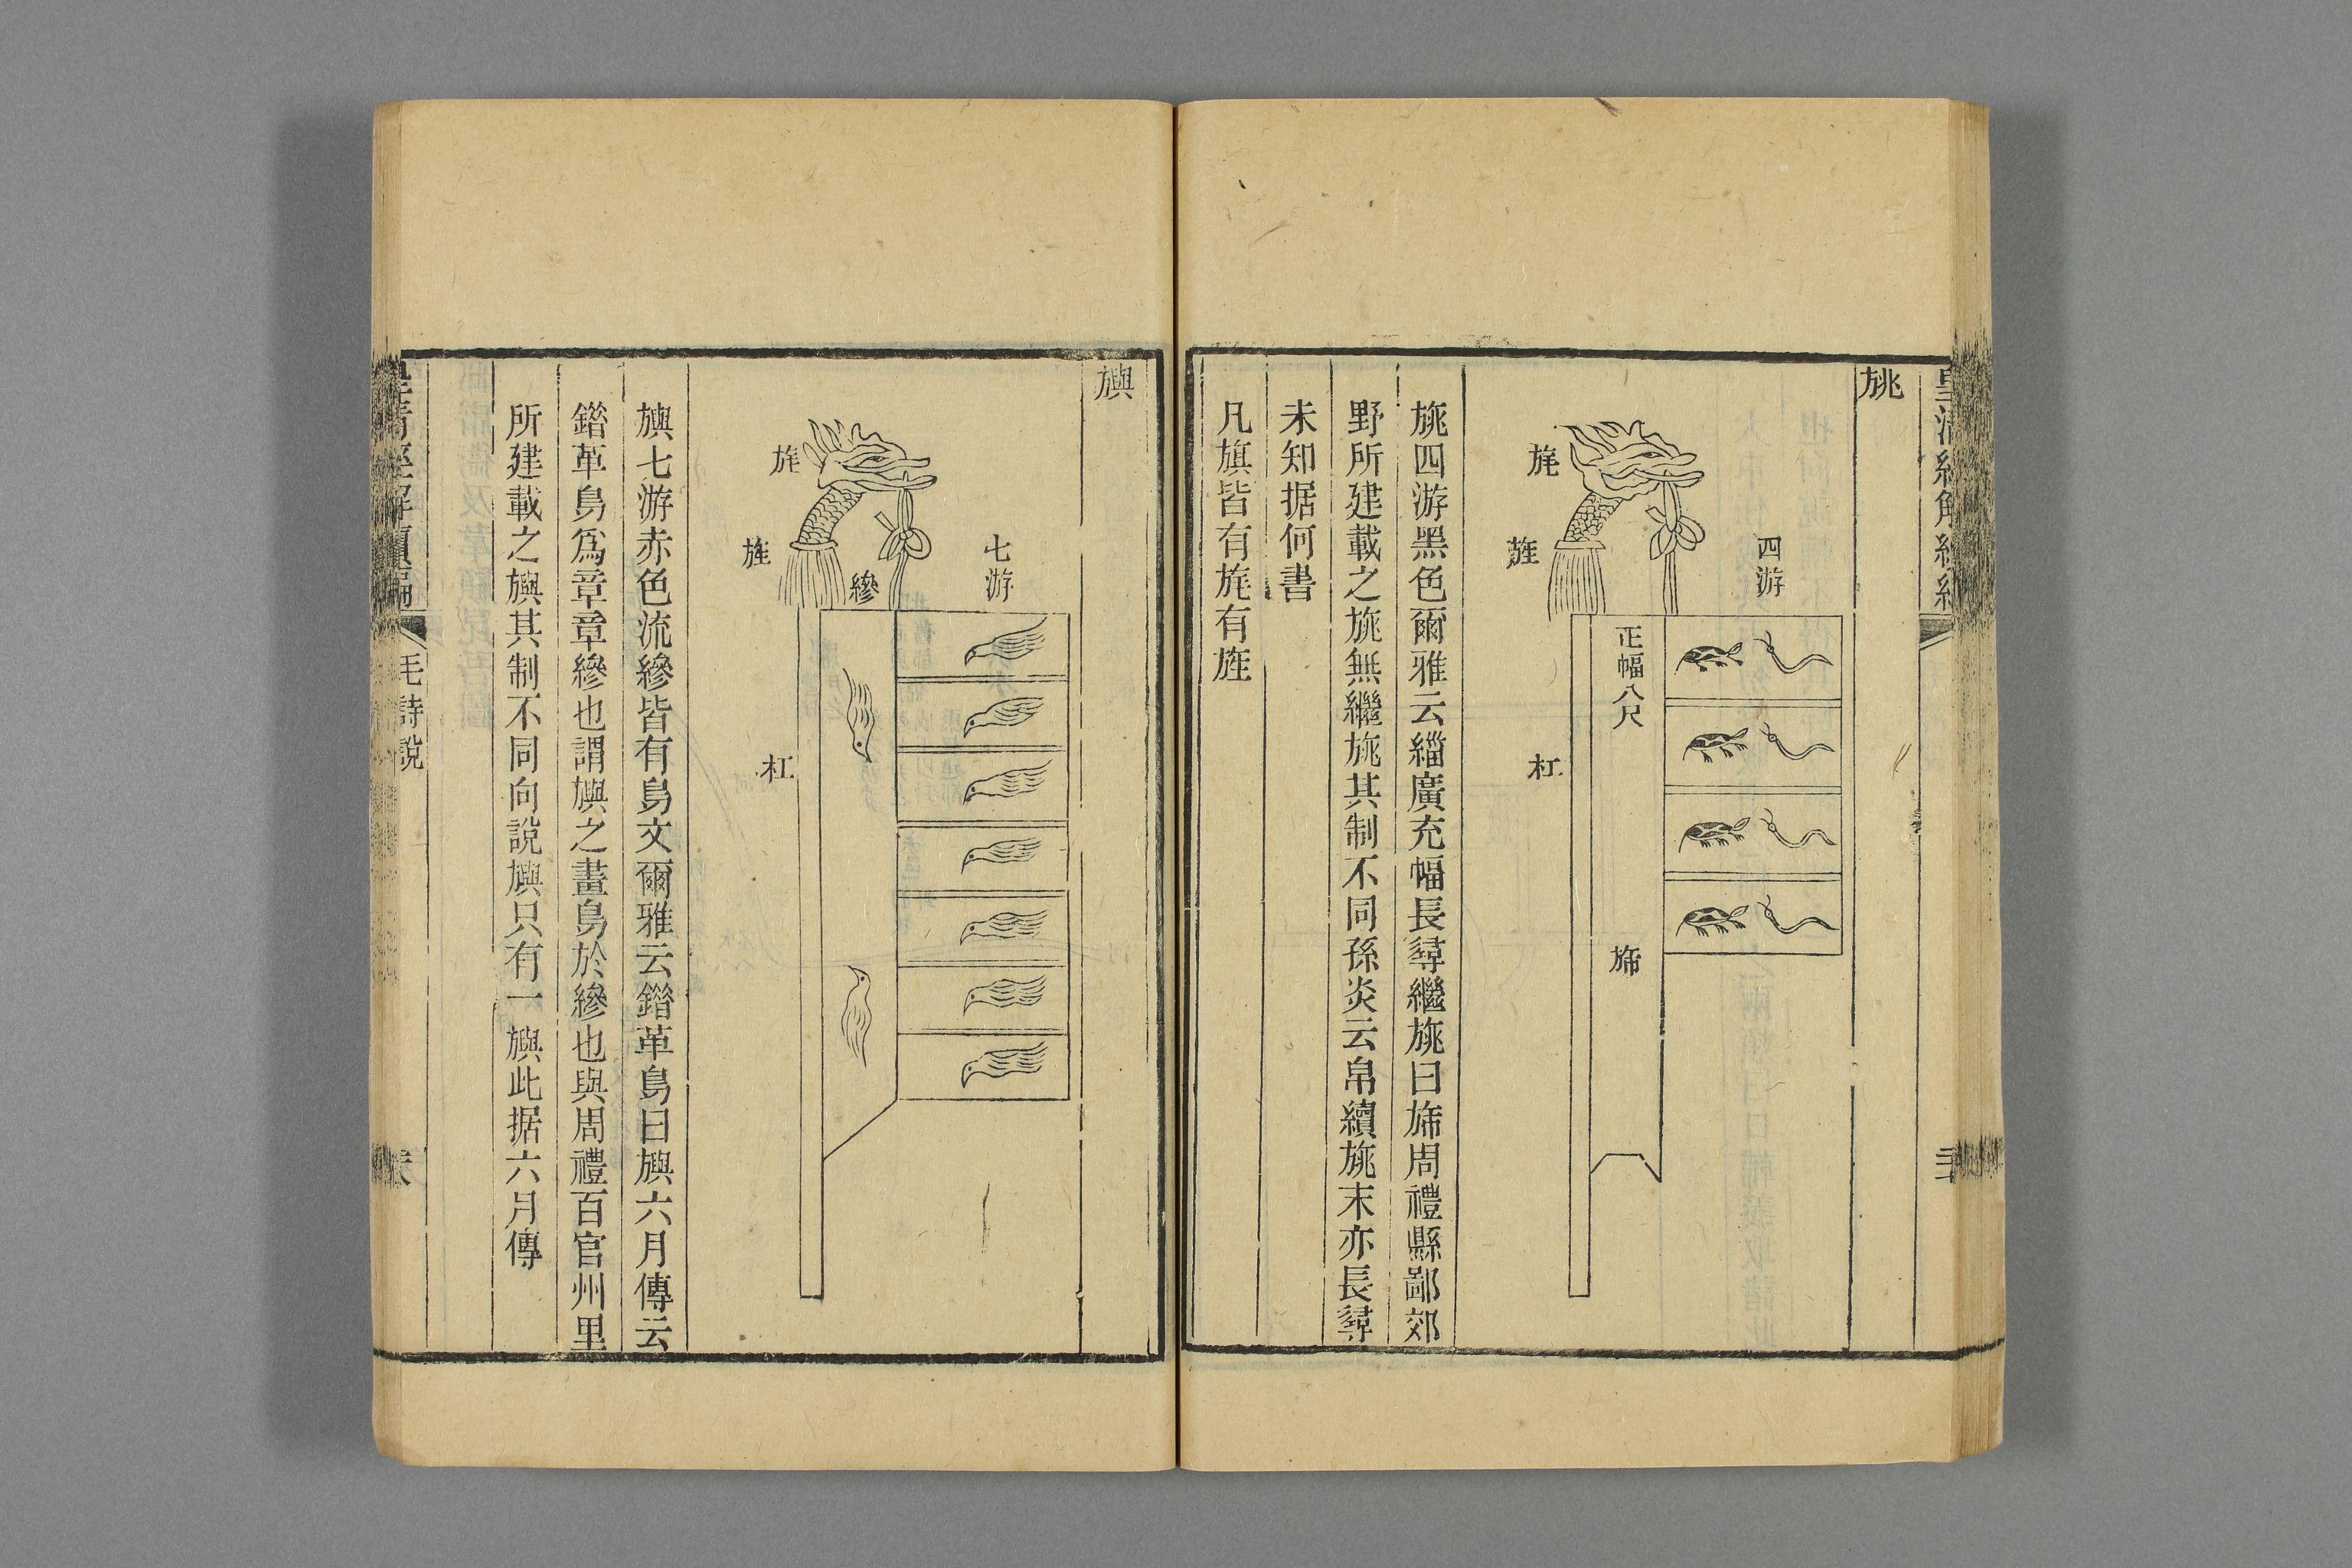 旐
四游
旄
旌
正幅八尺
杠
旆
旐四游黑色爾雅云緇廣充幅長尋繼旐曰旆周禮縣鄙郊
野所建載之旐無繼旐其制不同孫炎云帛續旐末亦長尋
未知据何書
凡旗皆有旄有旌
旟
七游
旄
旌
縿
杠
旟七游赤色流縿皆有鳥文爾雅云錯革鳥曰旟六月傳云
錯革鳥爲章章縿也謂旟之畫鳥於縿也與周禮百官州里
所建載之旟其制不同向說旟只有一旟此据六月傳
毛詩說